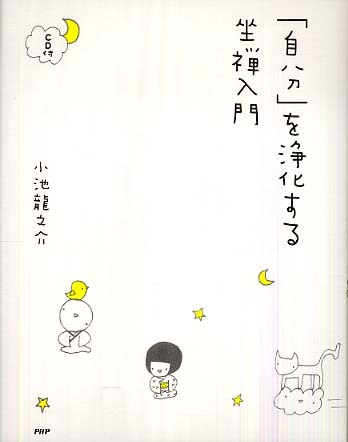 「自分」を浄化する
坐禅入門
CD付
小池龍之介
PHP